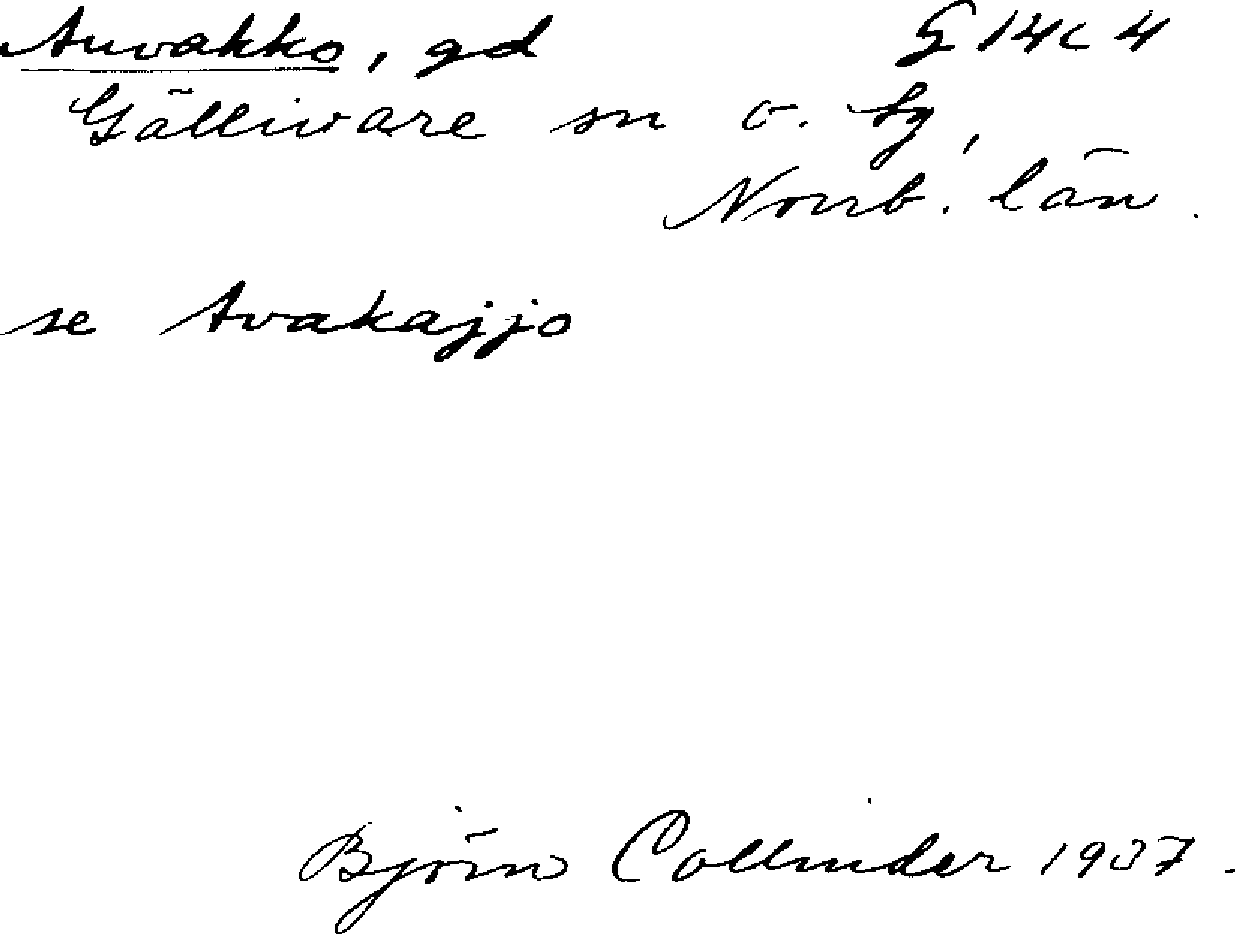 Auvakko, gd G 14c 4
Gällivare sn o. tg,
Norrb. län.
se Avakajjo
Björn Collinder 1937.